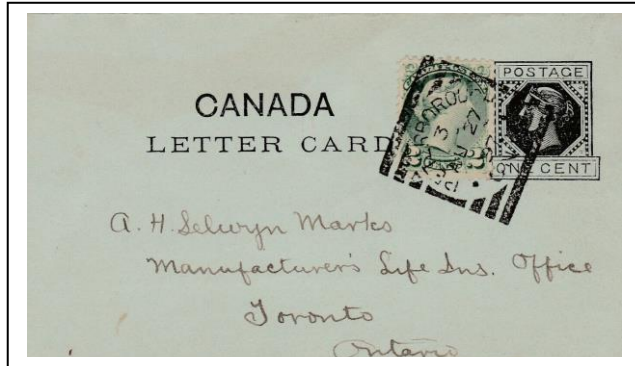 CANADA
LETTER CARD
POSTAGE
ONE CENT
A. H. Selwyn Marks
Manufacturer's Life Ins. Office
Toronto
Ontario